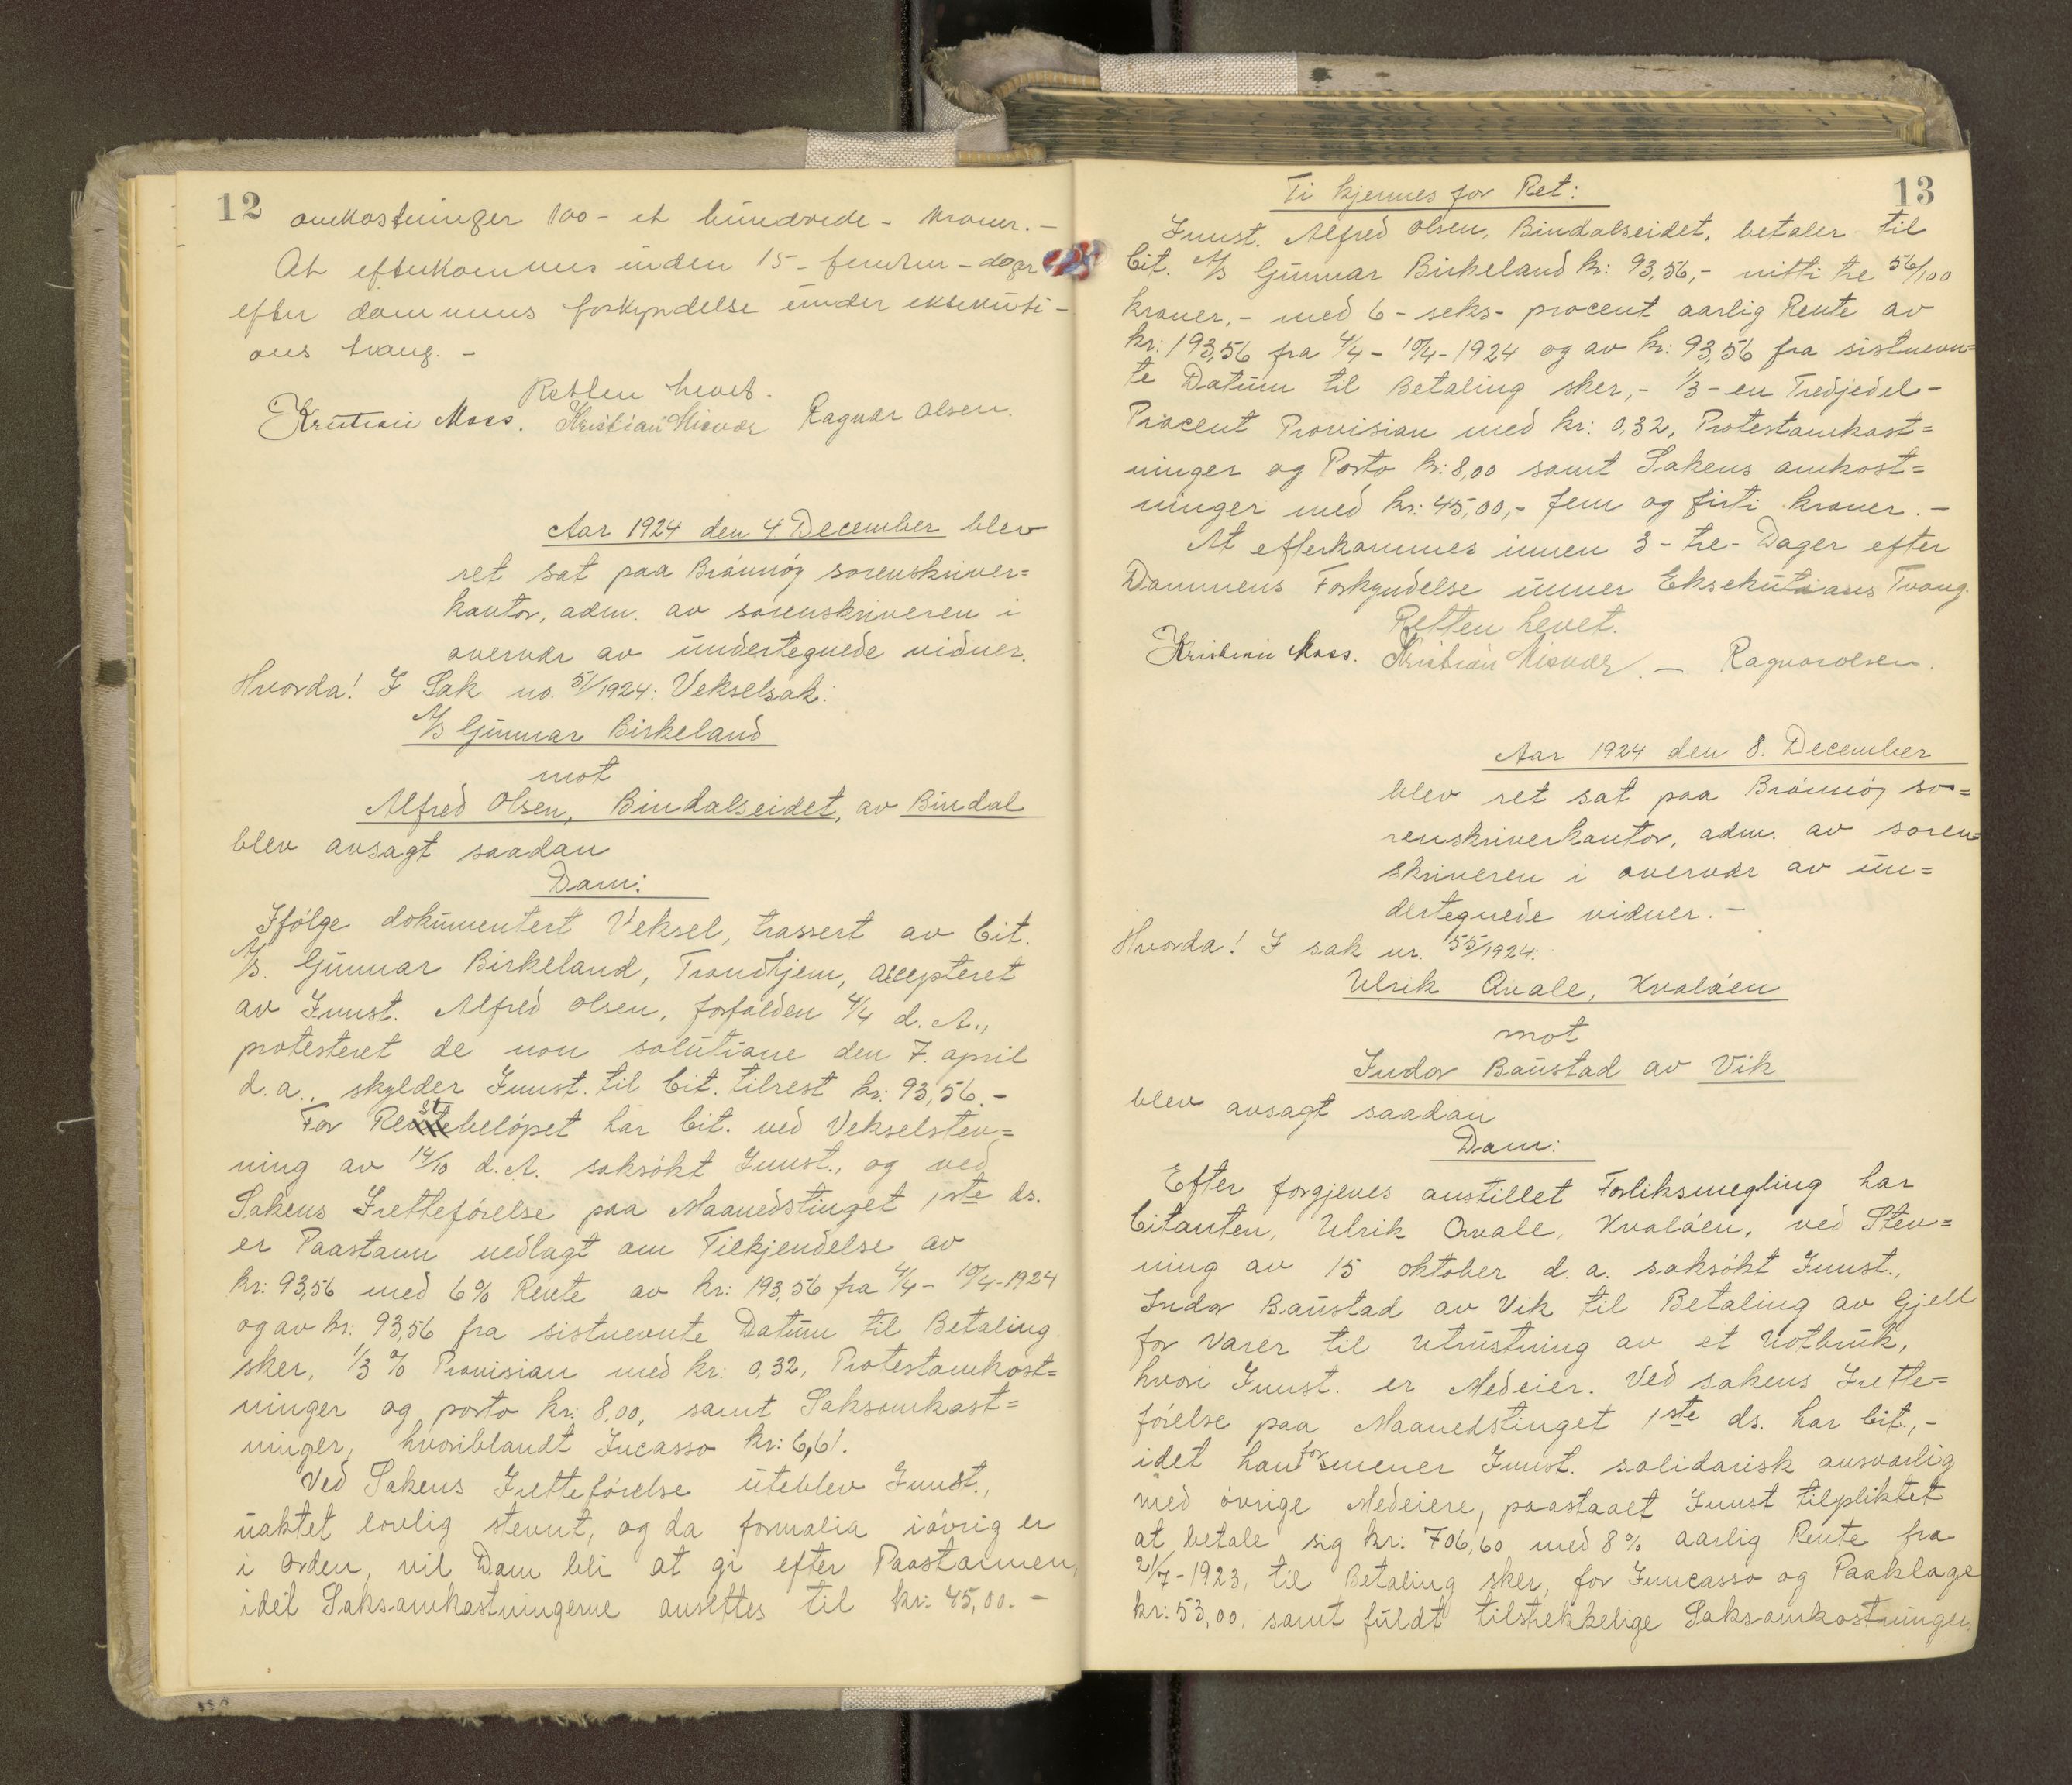 12
omkostninger 100 - et hundrede - kroner. -
At efterkommes inden 15 - femten - dager
efter dommens forkyndelse under eksekuti-
ons tvang. -
Retten hevet.
Kristian Moss. Kristian Misvær Ragnar Olsen.
Aar 1924 den 4 December blev
ret sat paa Brønnøy sorenskriver=
kontor, adm. av sorenskriveren i
overvær av undertegnede vidner.
Hvorda! I Sak no. 51/1924: Vekselsak:
A/S Gunnar Birkeland
mot
Alfred Olsen, Bindalseidet, av Bindal
blev avsagt saadan
Dom:
Ifølge dokumentert Veksel, trassert av Cit.
A/S. Gunnar Birkeland, Trondhjem, accepteret
av Innst. Alfred Olsen, forfalden 4/4 d. A.,
protesteret de non solutione den 7. april
d. a., skylder Innst. til Cit. tilrest kr: 93,56. -
For Restbeløpet har Cit. ved Vekselstev=
ning av 14/10 d. A. saksøkt Innst., og ved
Sakens Fretteførelse paa Maanedstinget 1ste ds.
er Paastann nedlagt om Tilkjendelse av
kr: 93,56 med 6% Rente av kr: 193,56 fra 4/4 - 10/4-1924
og av kr: 93,56 fra sistnevnte Datum til Betaling
sker, 1/3 % Provision med kr: 0,32, Protestomkost=
ninger og porto kr: 8,00, samt Saksomkost=
ninger, hvoriblandt Incasso kr: 6,61.
Ved Sakens Fretteførelse uteblev Innst.,
uaktet lovlig stevnt, og da formalia iøvrig er
i orden, vil Dom bli at gi efter Paastannen,
idet Saksomkostningerne ansettes til kr: 45,00. -
13
Ti kjennes for Ret:
Innst. Alfred Olsen, Bindalseidet, betaler til
Cit. A/S Gunnar Birkeland kr: 93,56, - nitti tre 56/100
kroner, - med 6 - seks - procent aarlig Rente av
kr: 193,56 fra 4/4 - 10/4-1924 og av kr: 93,56 fra sistnevn=
te Datum til Betaling sker, - 1/3 - en Tredjedel -
Procent Provision med kr: 0,32, Protestomkost=
ninger og Porto kr: 8,00 samt Sakens omkost=
ninger med kr: 45,00, - fem og firti kroner. -
At efterkommes innen 3 - tre - Dager efter
Dommens Forkyndelse unner Eksekutions Tvang.
Retten hevet.
Kristian Moss. Kristian Misvær. - Ragnar Olsen.
Aar 1924 den 8. December
blev ret sat paa Brønnøy so=
renskriverkontor, adm. av soren=
skriveren i overvær av un=
dertegnede vidner. -
Hvorda! I sak nr. 55/1924:
Ulrik Qvale, Kvaløen
mot
Indor Baustad av Vik
blev avsagt saadan
Dom:
Efter forgjeves anstillet Forliksmegling har
Citanten, Ulrik Qvale, Kvaløen, ved Stev=
ning av 15 oktober d. a. saksøkt Innst.,
Indor Baustad av Vik til Betaling av Gjeld
for Varer til Utrustning av et Notbruk,
hvori Innst. er Medeier. Ved sakens Frette=
førelse paa Maanedstinget 1ste ds. har Cit., -
idet han formener Innst. solidarisk ansvarlig
med øvrige Medeiere, paastaaet Innst tilpliktet
at betale sig kr: 706,60 med 8% aarlig Rente fra
21/7-1923, til Betaling sker, for Inncasso og Paaklage
kr: 53,00, samt fuldt tilstrekkelige Saksomkostninger,